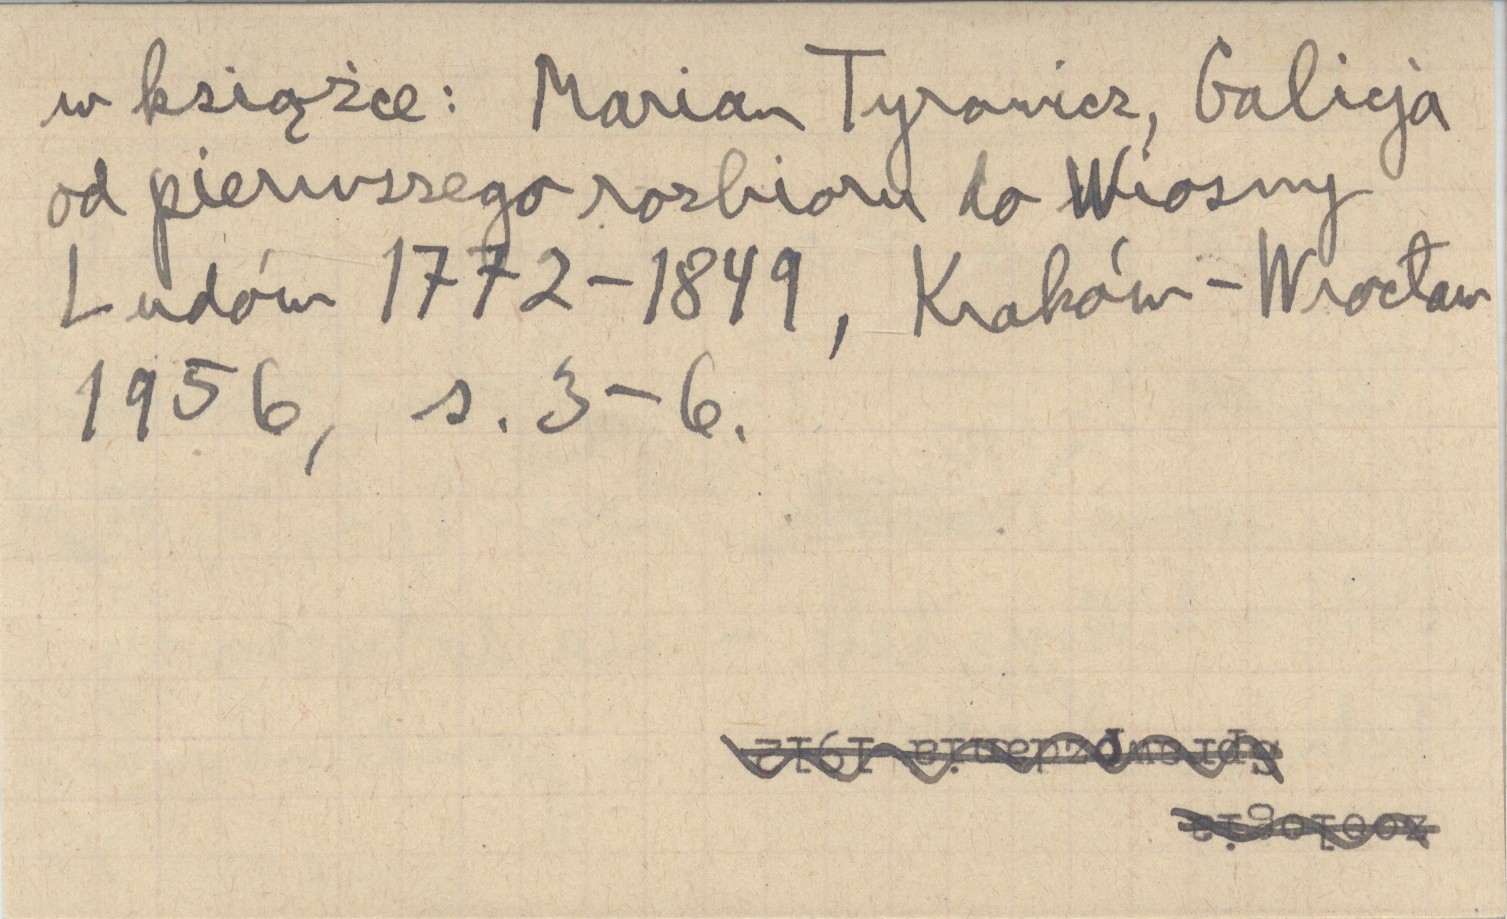 w książce: Marian Tyrowicz, Galicja
od pierwszego rozbioru do Wiosny
Ludów 1772-1849, Kraków-Wrocław
1956, s. 3-6.
zoologia
Sprawozdania 1912